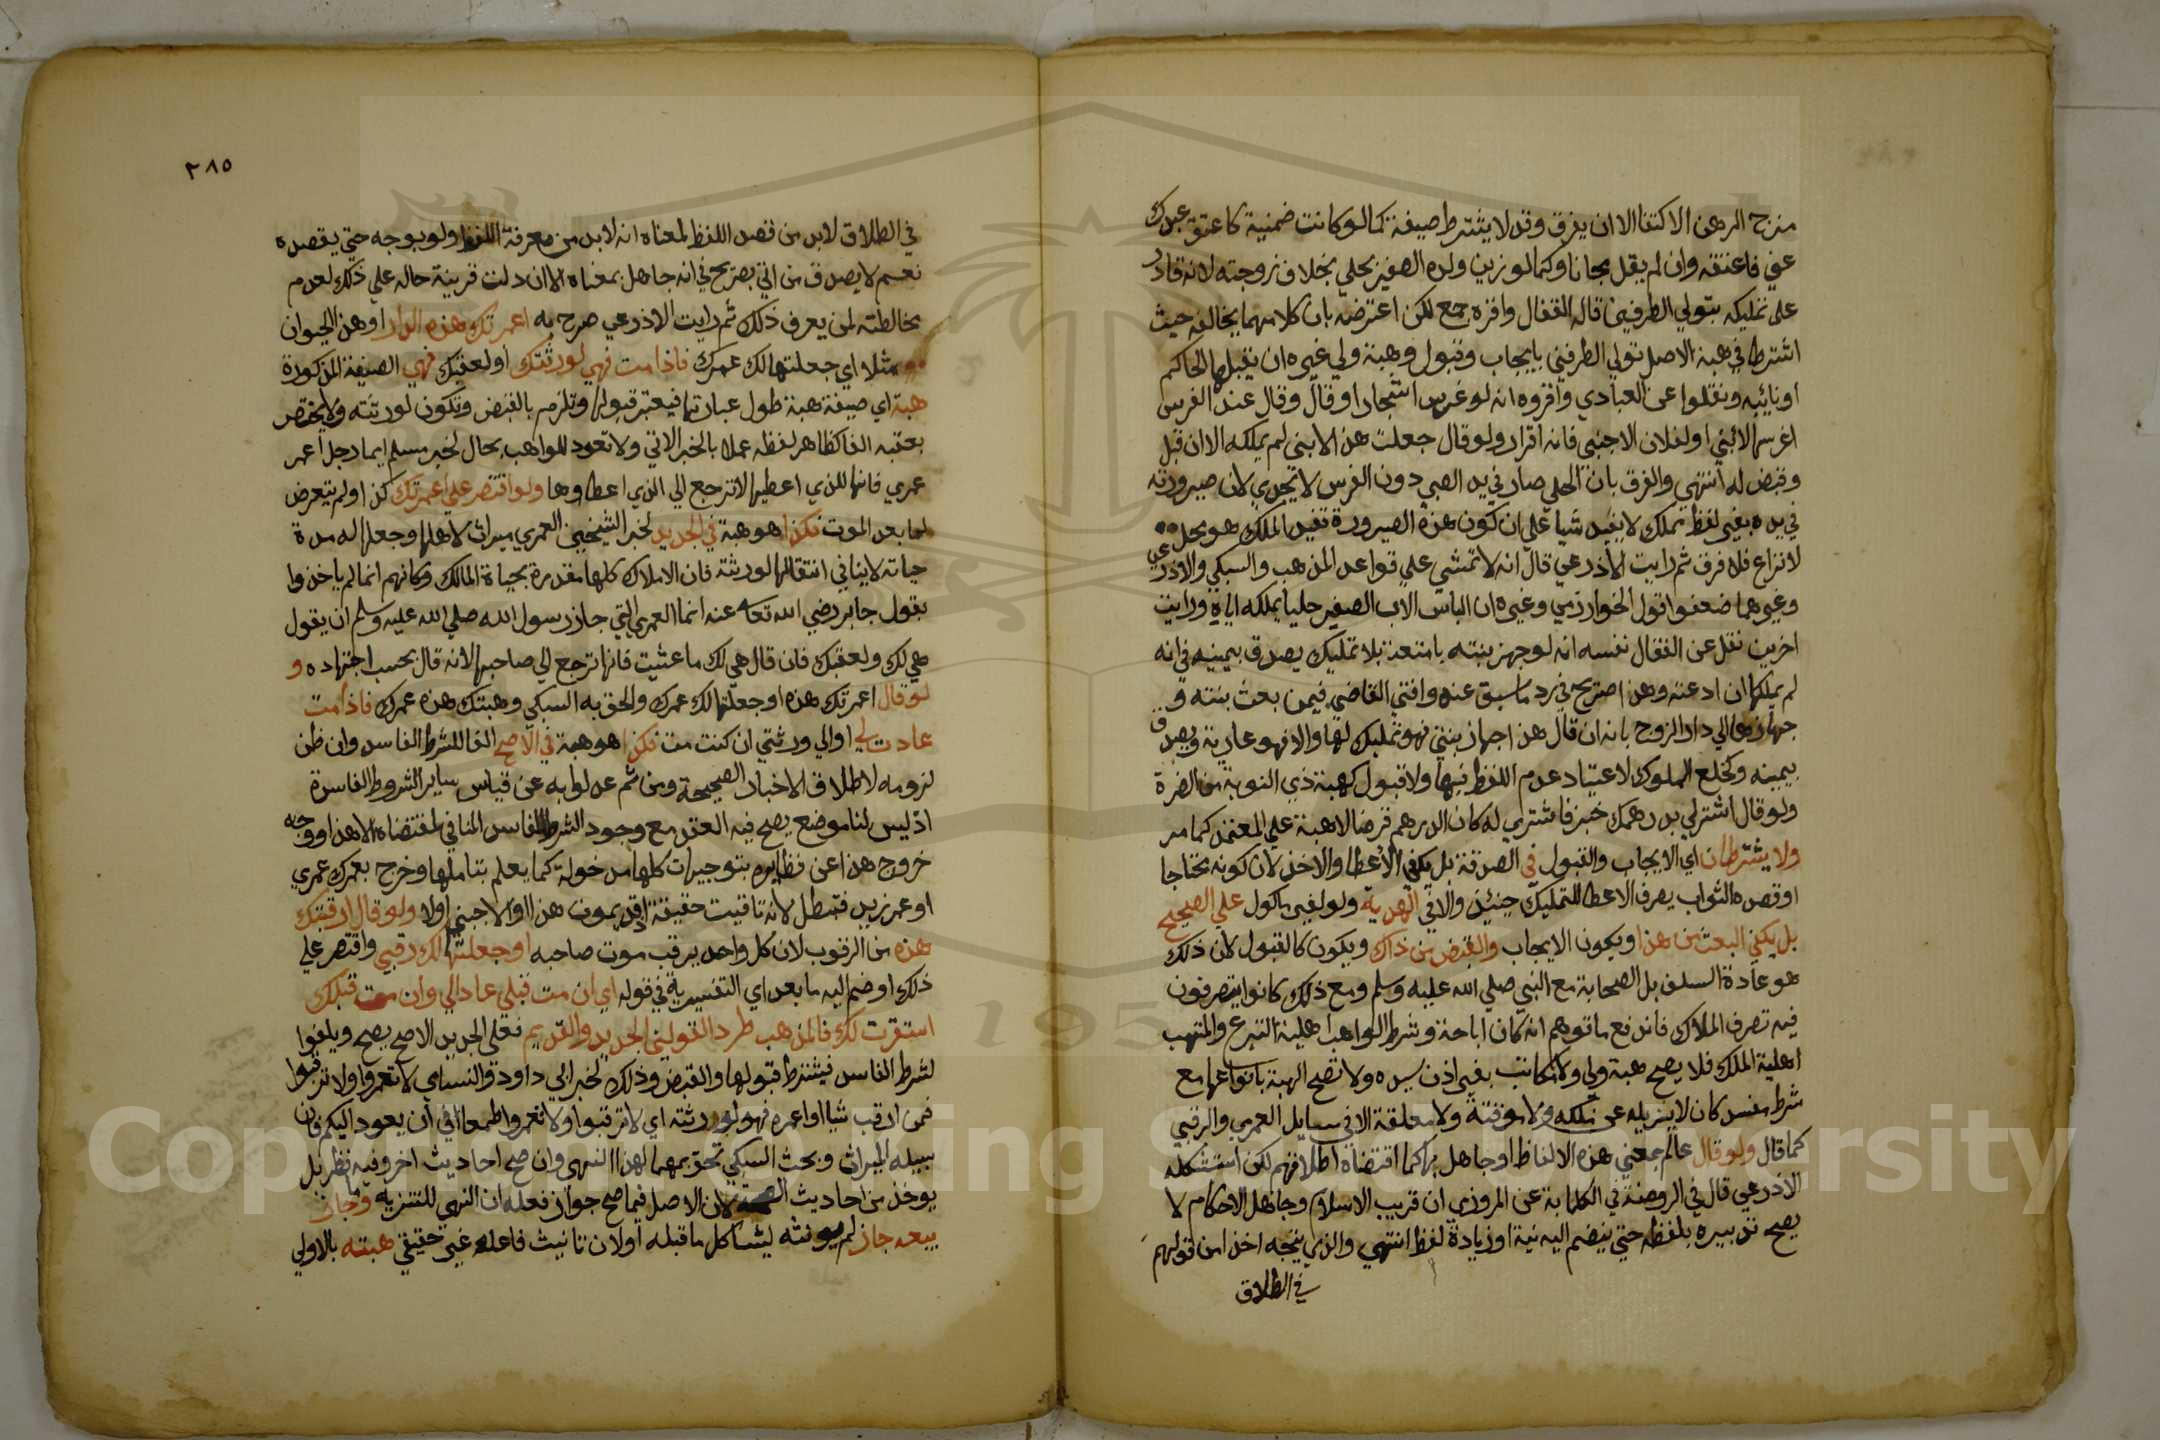 منزح الرهن الاكتفا الا ان يفرق وقد لا يشترط صيغة كما لو كانت ضمنية كاعتق عبدك
عني فاعتقه وان لم يقل مجانا وكما لو زين ولده الصغير بحلي بخلاف زوجته لانه قادر
على تمليكه بتولي الطرفين قاله القفال واقره جمع لكن اعترضه بان كلامهما يخالفه حيث
اشترطا في هبة الاصل تولي الطرفين بايجاب وقبول وهبة ولي غيره ان يقبلها الحاكم
او نائبه ونقلوا عن العبادي واقروه انه لو غرس اشجارا وقال وقال عند الغرس
اغرسها لابني او لفلان الاجنبي فانه اقرار ولو قال جعلت هذا لابني لم يملكه الا ان قبل
وقبض له انتهي والفرق بان الحلي صار في يد الصبي دون الغرس لا تجدي لان صيرورته
في يده بغير لفظ تملك لا يفيد شيا علي ان كون هذه الصيرورة تفيد الملك هو محل
النزاع فلا فرق ثم رايت الاذرعي قال انه لا تمشي علي قواعد المذهب والسبكي والاذرعي
وغيرهما ضعفوا قول الخوارزمي وغيره ان الباس الاب الصغير حليا يملكه اياه ورايت
اخرين نقل عن القفال نفسه انه لو جهز بنته بامتعة بلا تمليك يصدق بيمينه في انه
لم يملكها ان ادعته وهذا صريح في رد ما سبق عنه وافتي القاضي فيمن بعث بنته و
جهازها الي دار الزوج بانه ان قال هذا جهاز بنتي فهو تمليك لها والا فهو عارية ويصدق
بيمينه وكخلع الملوك لاعتياد عدم اللفظ فيها ولا قبول كهبة ذي النوبة من الضرة
ولو قال اشتر لي بدرهمك خبز فاشتري له كان الدرهم قرضا لا هبة علي المعتمد كما مر
ولا يشترطان اي الايجاب والقبول في الصدقة بل يكفي الاعطا والاخذ لان كونه محتاجا
او قصده الثواب يصرف الاعطا للتمليك حينئذ والا في الهدية ولو لغير ماكول علي الصحيح
بل يكفي البعث من هذا ويكون الايجاب والقبض من ذاك ويكون كالقبول لان ذلك
هو عادة السلف بل الصحابة مع النبي صلي الله عليه وسلم ومع ذلك كانوا يتصرفون
فيه تصرف الملاك فاندفع ما توهم انه كان اباحة وشرط الواهب اهلية التبرع والمتهب
اهلية الملك فلا يصح هبة ولي ولا مكاتب بغير اذن سيده ولا تصح الهبة بانواعها مع
شرط مفسد كان لا يزيله عن ملكه ولا موقتة ولا معلقة الا في مسايل العمري والرقبي
كما قال ولو قال عالم بمعني هذه الالفاظ او جاهل بها كما اقتضاه اطلاقهم لكن استشكله
الاذرعي قال في الروضة في الكتابة عن المروزي ان قريب الاسلام وجاهل الاحكام لا
يصح تدبيره بلفظه حتي ينضم اليه نية او زيادة لفظ انتهي والذي يتجه اخذا من قولهم
في الطلاق
٢٨٥
في الطلاق لابد من قصد اللفظ لمعناه انه لابد من معرفة اللفظ ولو بوجه حتي يقصده
نعم لا يصدق من اتي بصريح في انه جاهل بمعناه الا ان دلت قرينة حاله علي ذلك لعدم
مخالطته لمن يعرف ذلك ثم رايت الاذرعي صرح به اعمرتك هذه الدار او هذا الحيوان
مثلا اي جعلتها لك عمرك فاذا مت فهي لورثتك او لعقبك فهي الصيغة المذكورة
هبة اي صيغة هبة طول عبارتها فيعتبر قبولها وتلزم بالقبض وتكون لورثته ولا يختص
بعقبه الغا لظاهر لفظه عملا بالخبر الاتي ولا تعود للواهب بحال لخبر مسلم ايما رجل اعمر
عمري فانها للذي اعطيها لا ترجع الي الذي اعطاها ولو اقتصر علي اعمرتك كذا ولم يتعرض
لما بعد الموت فكذا هو هبة في الجديد لخبر الشيخين العمري ميراث لاهلها وجعلها له مدة
حياته لا ينافي انتقالها لورثته فان الاملاك كلها مقدرة بحياة المالك وكانهم انما لم ياخذوا
بقول جابر رضي الله تعالى عنه انما العمري التي جاز رسول الله صلي الله عليه وسلم ان يقول
هي لك ولعقبك فان قال هي لك ما عشت فانها ترجع الي صاحبها لانه قال بحسب اجتهاده و
لو قال اعمرتك هذه او جعلتها لك عمرك والحق به السبكي وهبتك هذه عمرك فاذا مت
عادت لي او الي ورثتي ان كنت مت فكذا هو هبة في الاصح الغا للشرط الفاسد وان ظن
لزومه لاطلاق الاخبار الصحيحة ومن ثم عدلوا به عن قياس ساير الشروط الفاسدة
اذ ليس لنا موضع يصح فيه العقد مع وجود الشرط الفاسد المنافي لمقتضاه الا هذا ووجه
خروج هذا عن نظايره بتوجيهات كلها مدخولة كما يعلم بتاملها وخرج بعمرك عمري
او عمر زيد فتبطل لانه تاقيت حقيقة اذ قد يموت هذا او الاجنبي اولا ولو قال ارقبتك
هذه من الرقوب لان كل واحد يرقب موت صاحبه او جعلتها لك رقبي واقتصر علي
ذلك او ضم اليه ما بعد اي التفسيرية في قوله اي ان مت قبلي عاد الي وان مت قبلك
استقرت لك فالمذهب طرد القولين الجديد والقديم فعلي الجديد الاصح يصح ويلغوا
لشرط الفاسد فيشترط قبولها والقبض وذلك لخبر ابي داود والنسائي لا تعمروا ولا ترقبوا
فمن ارقب شيا او اعمره فهو لورثته اي لا ترقبوا ولا تعمروا طمعا في ان يعود اليكم فان
سبيله الميراث وبحث السبكي تحريمهما لهذا النهي وان صح احاديث اخر وفيه نظر بل
يوخذ من احاديث الصحة لان الاصل فيما صح جواز فعله ان النهي للتنزيه وما جاز
بيعه جاز لم يونثه ليشاكل ما قبله او لان تانيث فاعله غير حقيقي هبته بالاولي